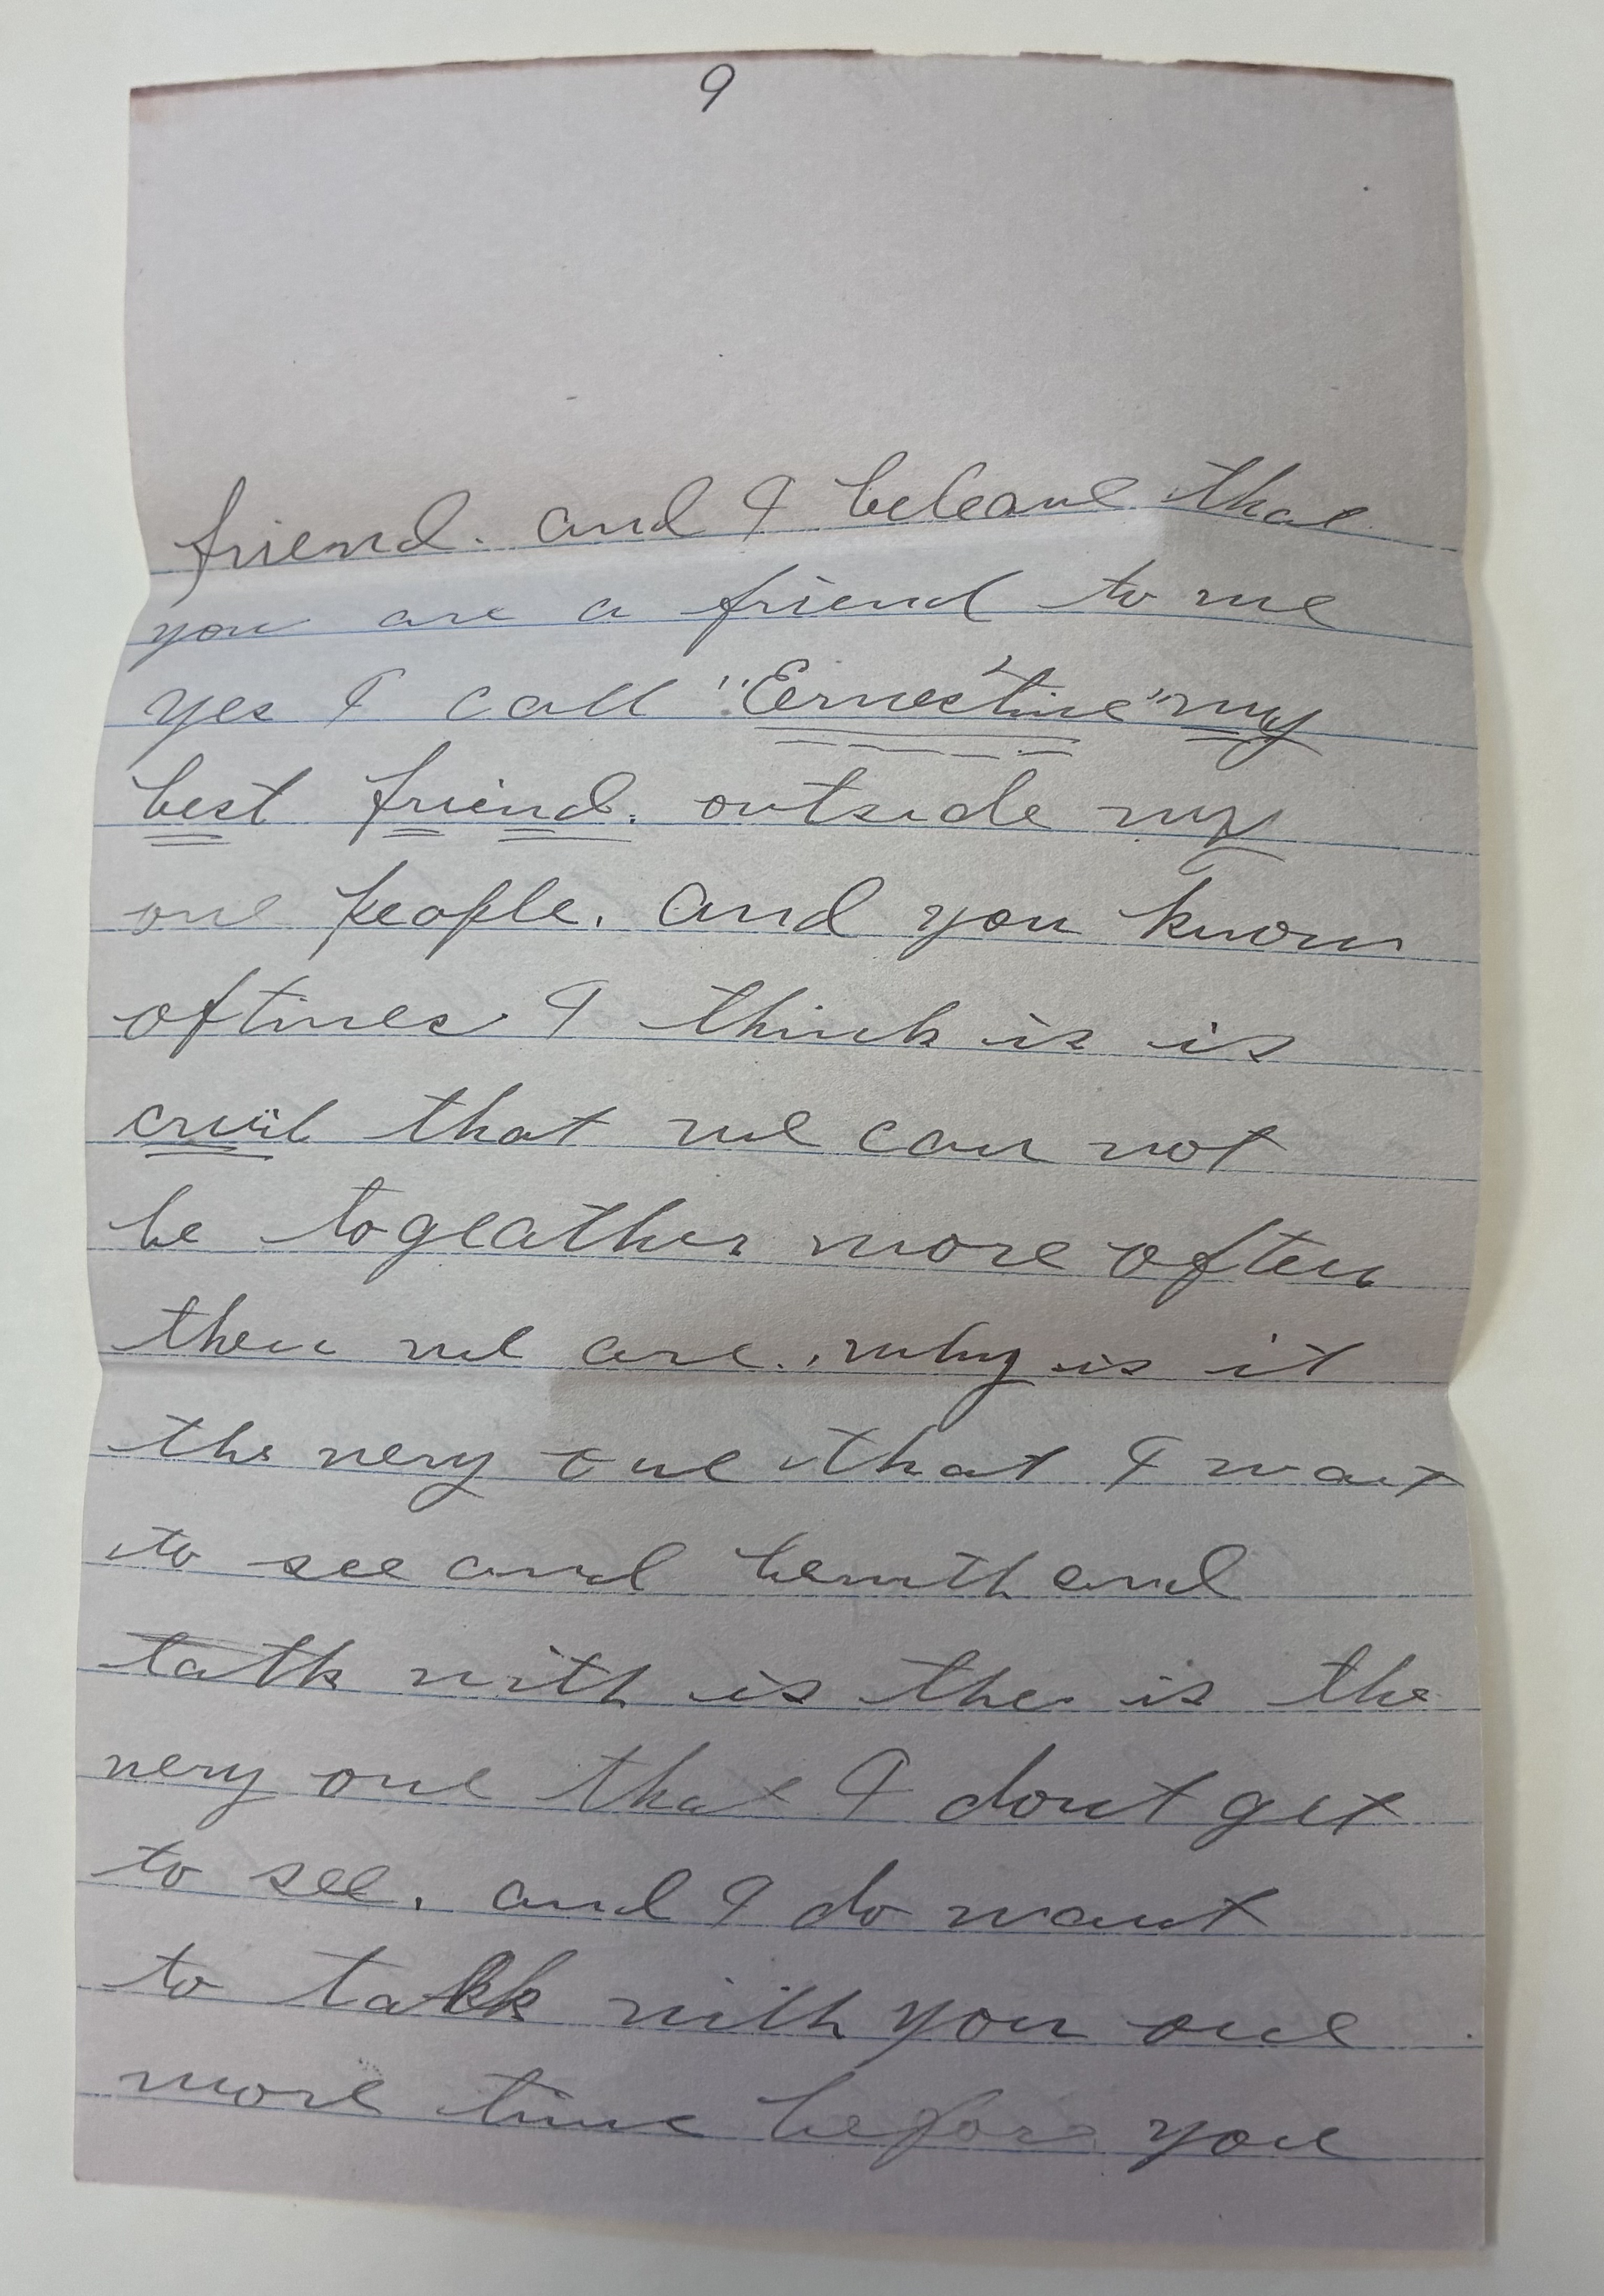 9
friend. and I beleave that
you are a friend to me
yes I call "Ernestine" my
best friend. outside my
one people. and you know
oftimes I think is is
cruil that we can not
be togeather more often
then we are. why is it
the very one that I want
to see and be with and
talk with is the is the
very one that I dont get
to see. and I do want
to talk with you one
more time before you